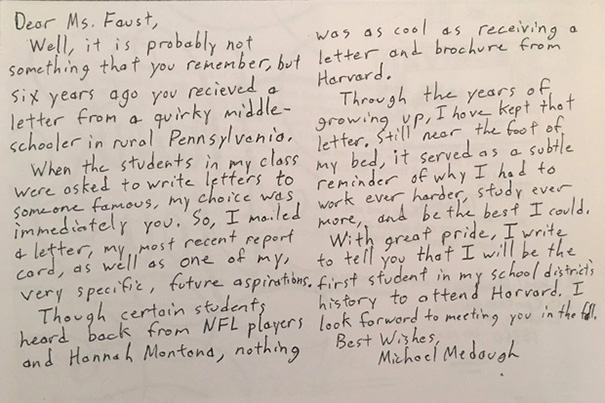 Dear Ms. Faust,
Well, it is probably not
something that you remember, but
six years ago you recieved a
letter from a quirky middle-
schooler in rural Pennsylvania.
When the students in my class
were asked to write letters to
someone famous, my choice was
immediately you. So, I mailed
a letter, my most recent report
card, as well as one of my,
very specific, future aspirations.
Though certain students
heard back from NFL players
and Hannah Montana, nothing
was as cool as receiving a
letter and brochure from
Harvard.
Through the years of
growing up, I have kept that
letter. Still near the foot of
my bed, it served as a subtle
reminder of why I had to
work ever harder, study ever
more, and be the best I could.
With great pride, I write
to tell you that I will be the
first student in my school district's
history to attend Harvard. I
look forward to meeting you in the fall.
Best Wishes,
Michael Medaugh